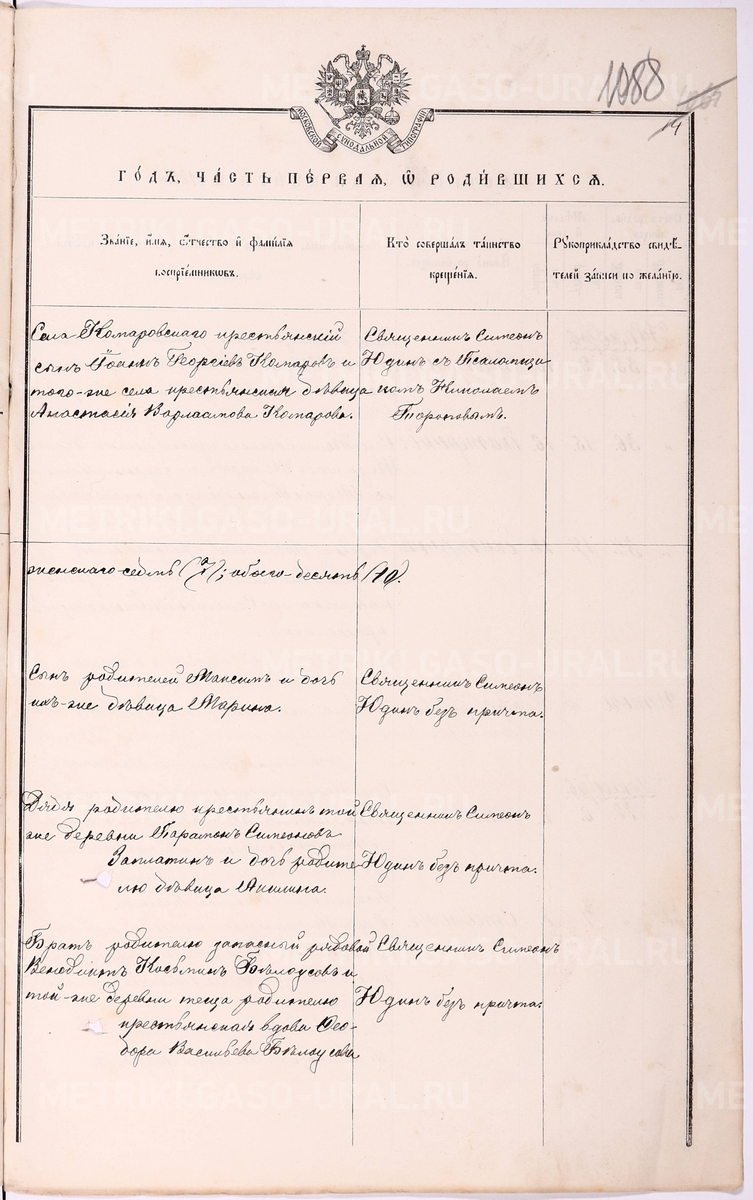 1088
14
МОСКОВСКОЙ СѴНОДАЛЬНОЙ ТИПОГРАФІИ
ГОДЪ, ЧАСТЬ ПЕРВАЯ, Ѿ РОДИВШИХСЯ.
Званіе, имя, отчество и фамилія
воспріемниковъ.
Кто совершалъ таинство
крещенія.
Рукоприкладство свидѣ-
телей записи по желанію.
Села Комаровскаго крестьянскій
сынъ Іоаннъ Георгіевъ Комаровъ и
того-же села крестьянская дѣвица
Анастасія Варлаамова Комарова.
Священникъ Симеонъ
Юдинъ съ Псаломщи
комъ Николаемъ
Топорковымъ.
женскаго-седмь (7); обоего-десять (10).
Сынъ родителей Максимъ и дочь
ихъ-же дѣвица Марина.
Священникъ Симеонъ
Юдинъ безъ причта.
Дядя родителю крестьянинъ той
же деревни Парамонъ Симеоновъ
Заплатинъ и дочь родите-
лю дѣвица Акилина.
Священникъ Симеонъ
Юдинъ безъ причта.
Братъ родителю запасный рядовой
Венедиктъ Косьминъ Бѣлоусовъ и
той-же деревни теща родителю
крестьянская вдова Ѳео-
дора Васильева Бѣлоусова
Священникъ Симеонъ
Юдинъ безъ причта.
METRIKI.GASO-URAL.RU